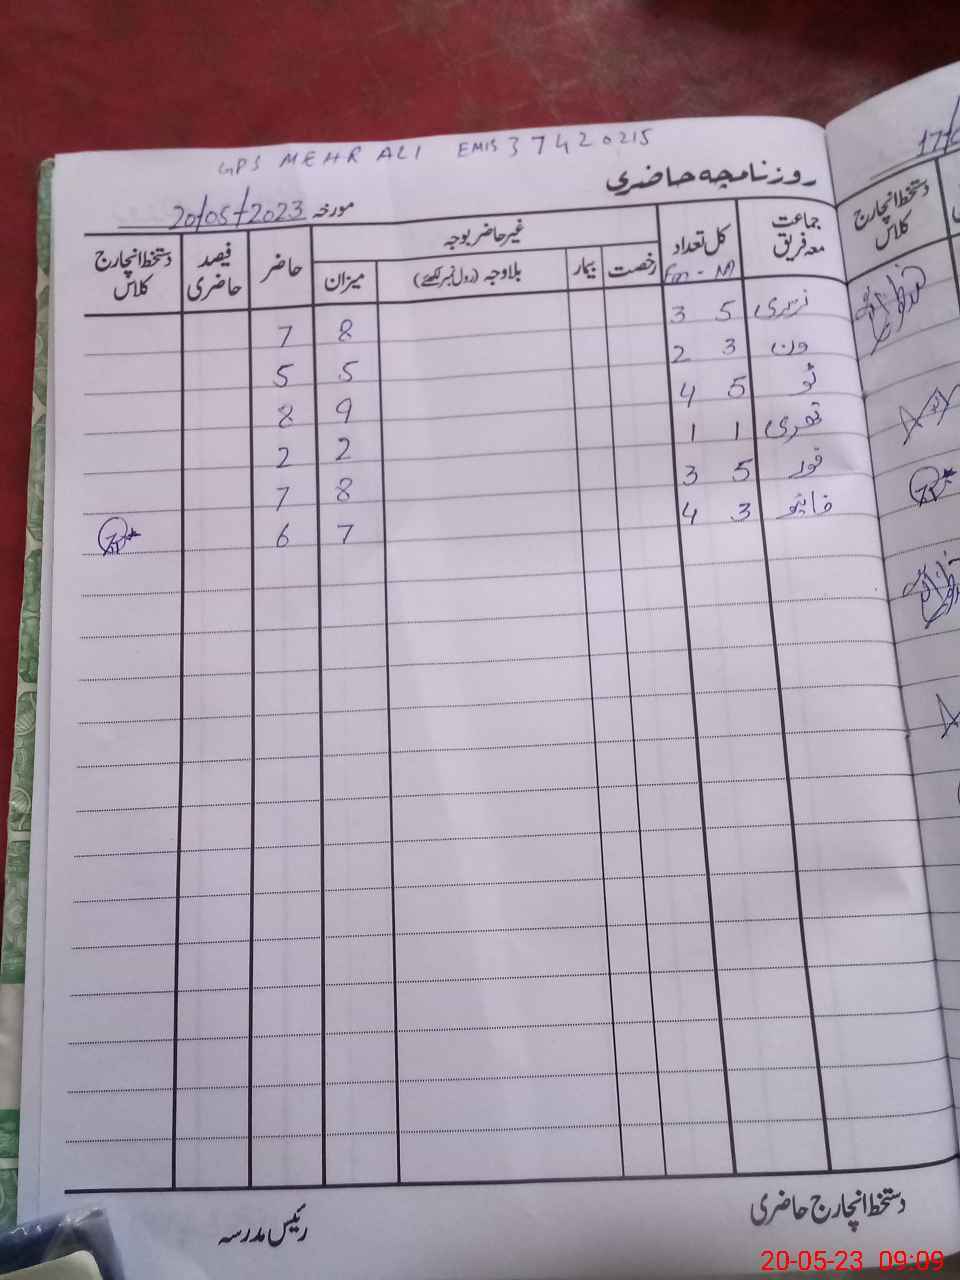 GPS MEHR ALI EMIS 37420215
روزنامچہ حاضری
مورخہ 20/05/2023
جماعت معہ فریق
کل تعداد
غیر حاضر بوجہ
حاضر
فیصد حاضری
دستخط انچارج کلاس
رخصت
بیمار
بلاوجہ (رول نمبر لکھئے)
میزان
نرسری 5 3 8 7
ون 3 2 5 5
ٹو 5 4 9 8
تھری 1 1 2 2
فور 5 3 8 7
فائیو 3 4 7 6
دستخط انچارج حاضری
رئیس مدرسہ
دستخط انچارج کلاس
20-05-23 09:09